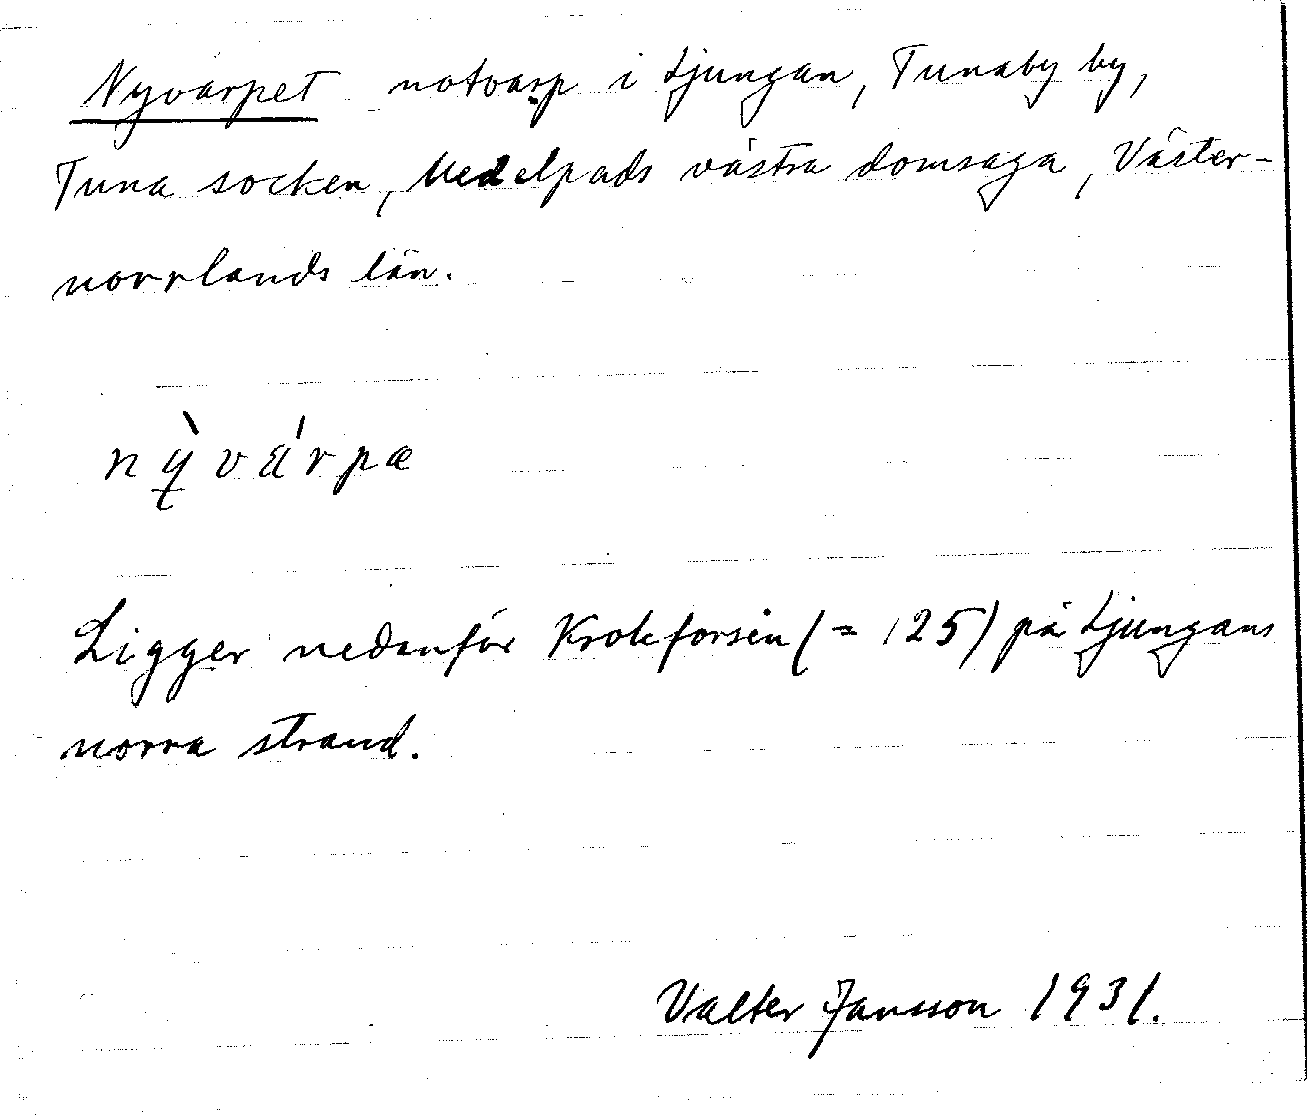 Nyvarpet notvarp i Ljungan, Tunaby by,
Tuna socken, Medelpads västra domsaga, Väster-
norrlands län.
nỳvárpæ
Ligger nedanför Krokforsen (= 125) på Ljungans
norra strand.
Valter Jansson 1931.